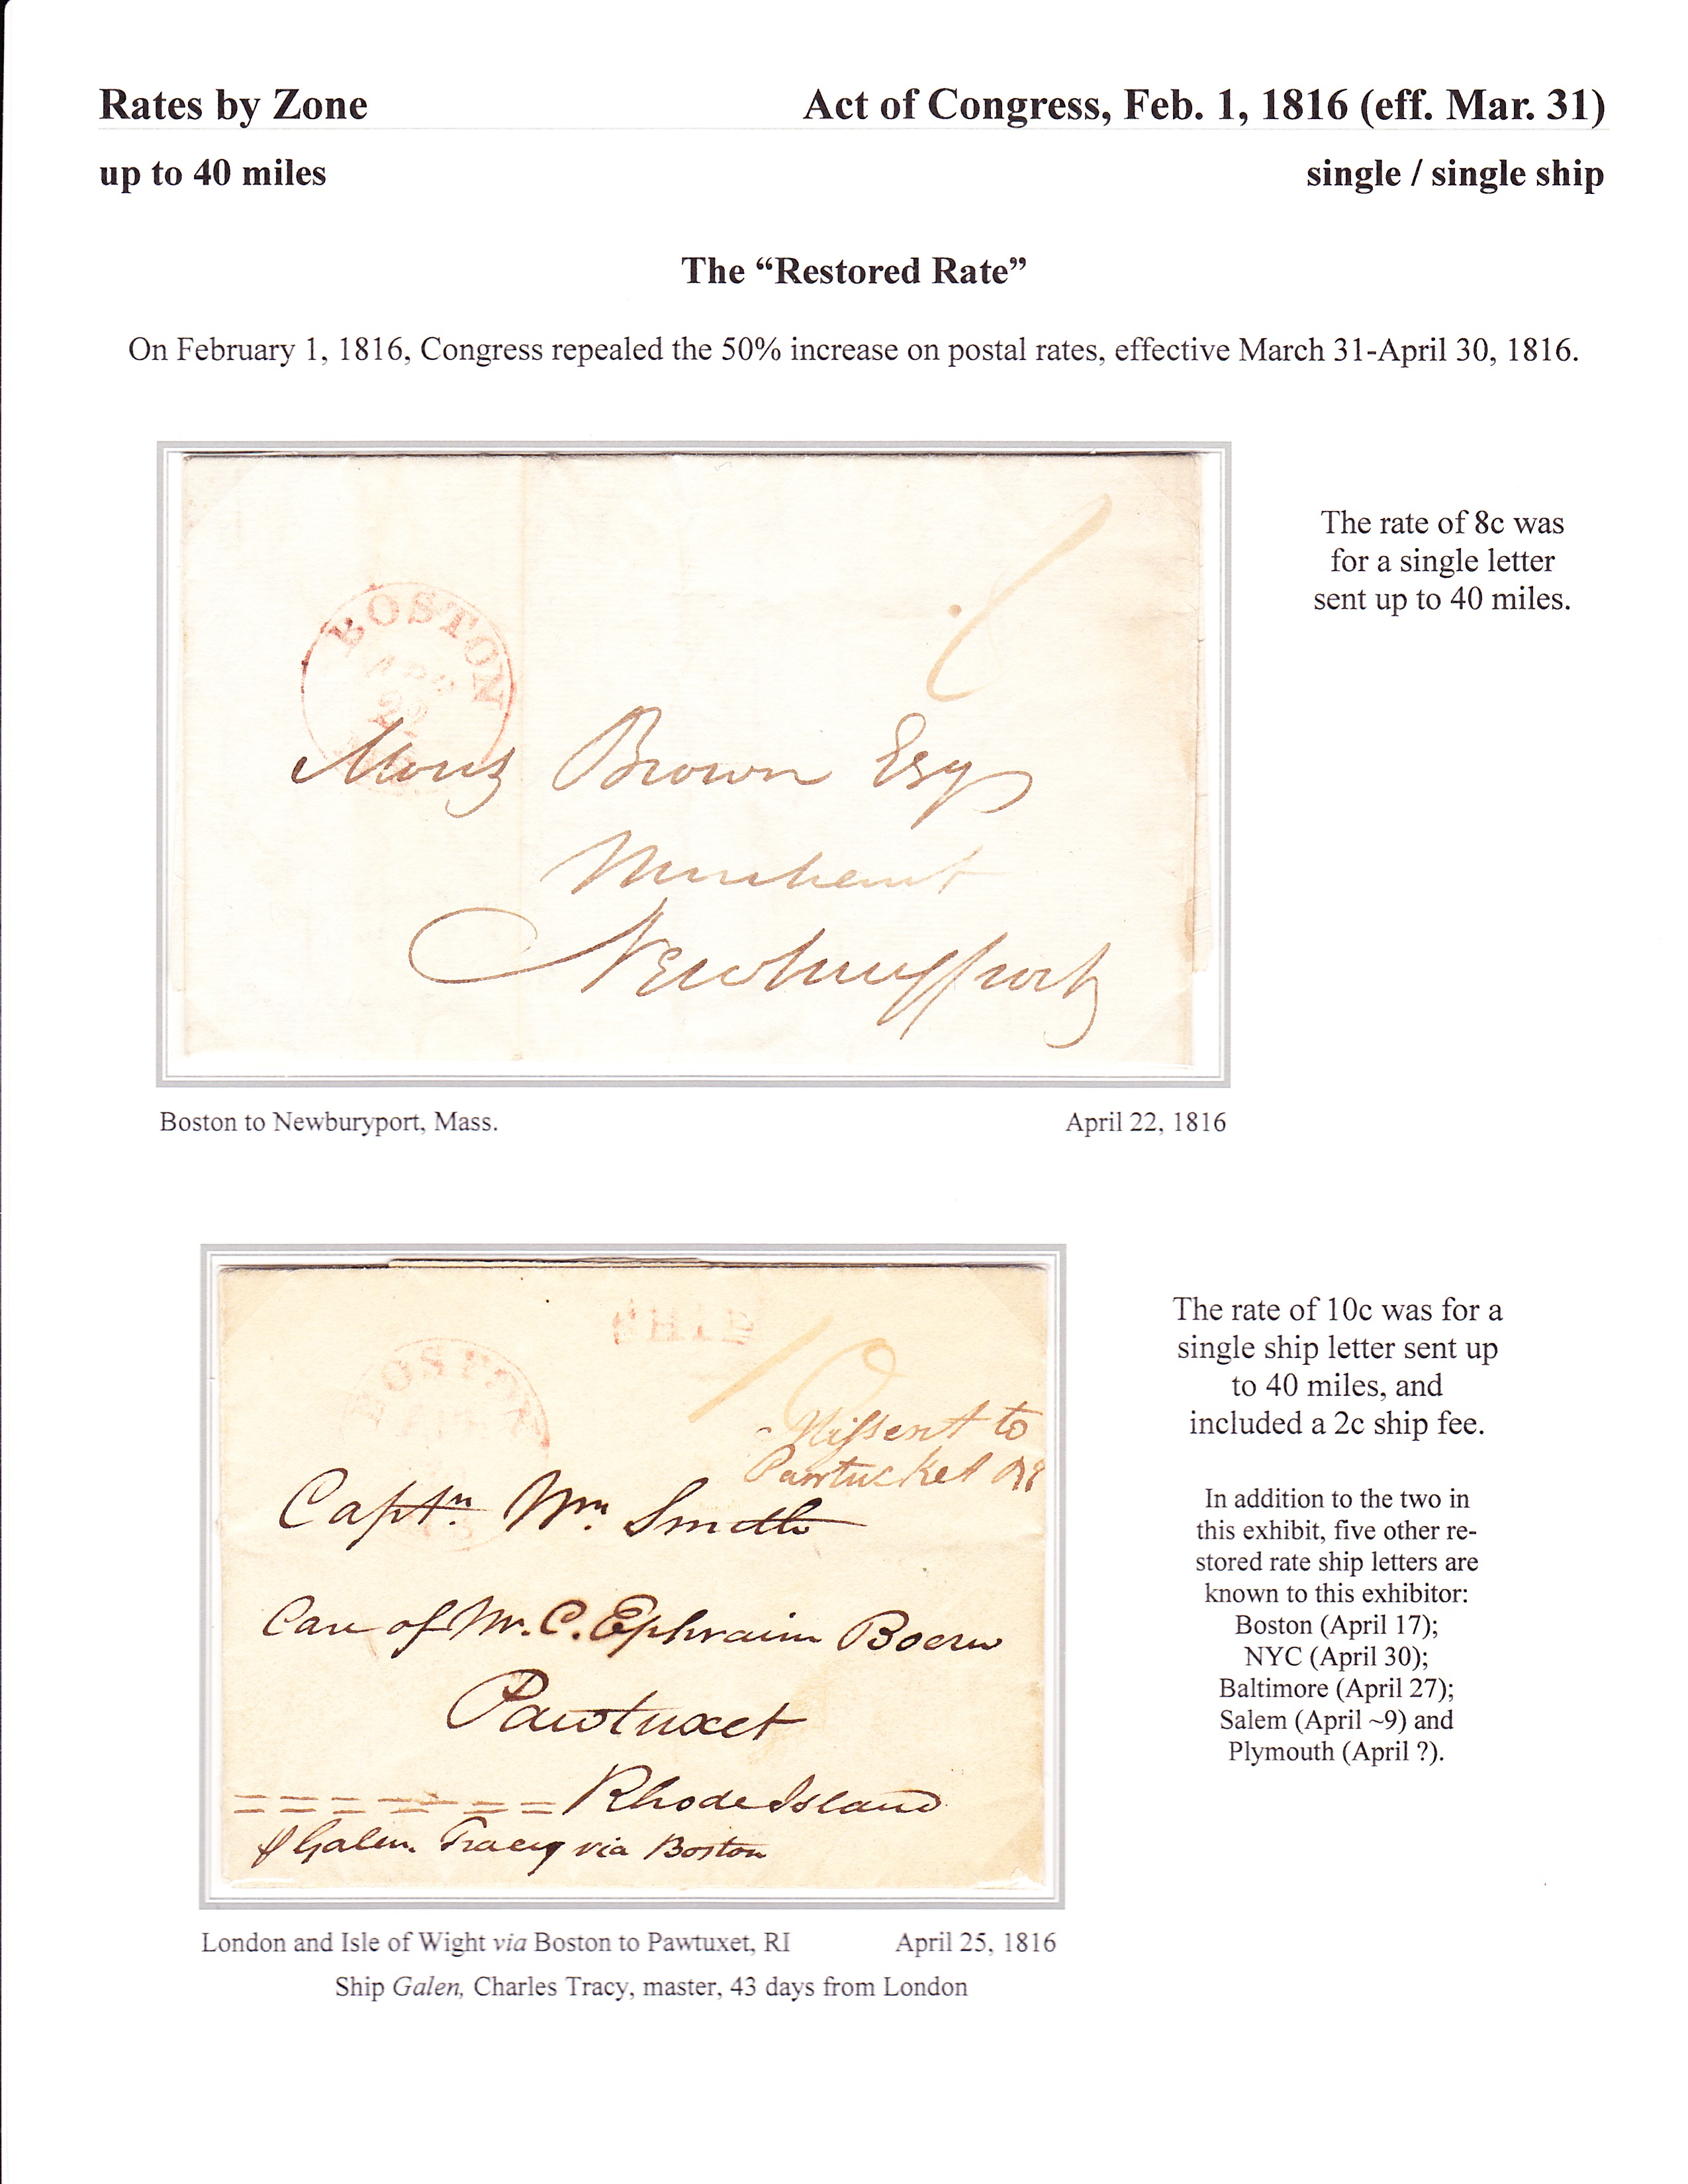 Rates by Zone
Act of Congress, Feb. 1, 1816 (eff. Mar. 31)
up to 40 miles
single / single ship
The “Restored Rate”
On February 1, 1816, Congress repealed the 50% increase on postal rates, effective March 31-April 30, 1816.
The rate of 8c was
for a single letter
sent up to 40 miles.
BOSTON
APR
22
Brown Esq
Merchant
Newburyport
Boston to Newburyport, Mass.
April 22, 1816
SHIP
BOSTON
10
Missent to
Pawtucket RI
Captn Wm Smith
Care of Mr. C. Ephraim
Pawtuxet
Rhode Island
Galen, Tracy via Boston
The rate of 10c was for a
single ship letter sent up
to 40 miles, and
included a 2c ship fee.
In addition to the two in
this exhibit, five other re-
stored rate ship letters are
known to this exhibitor:
Boston (April 17);
NYC (April 30);
Baltimore (April 27);
Salem (April ~9) and
Plymouth (April ?).
London and Isle of Wight via Boston to Pawtuxet, RI
April 25, 1816
Ship Galen, Charles Tracy, master, 43 days from London